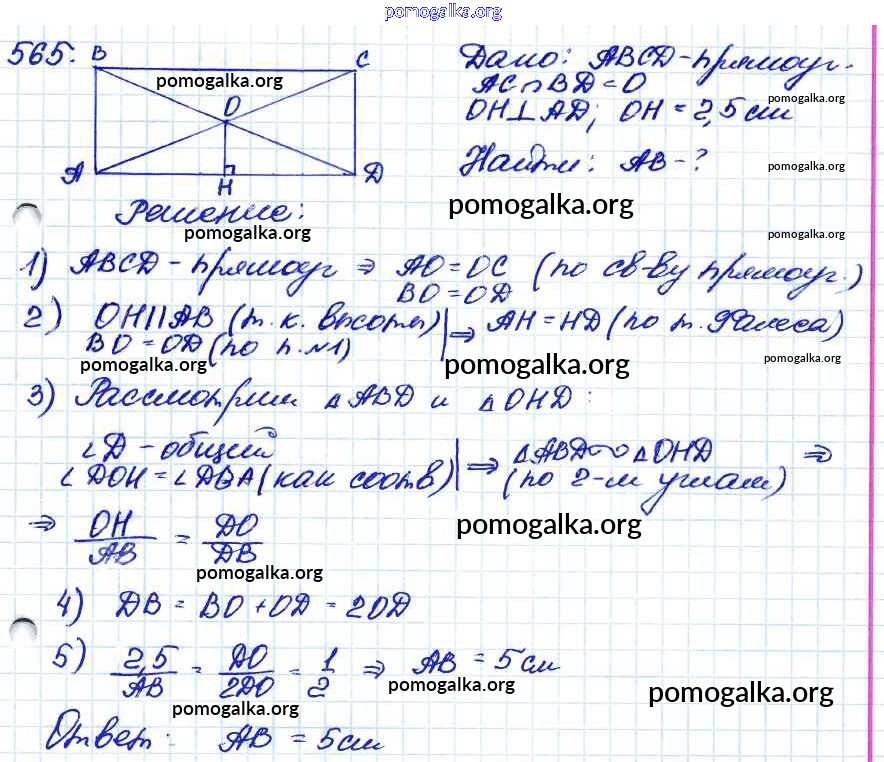 pomogalka.org
565.
B
C
O
A
H
D
pomogalka.org
Дано: ABCD - прямоуг.
AC ∩ BD = O
pomogalka.org
OH ⊥ AD; OH = 2,5 см
Найти: AB - ?
pomogalka.org
pomogalka.org
Решение:
pomogalka.org
pomogalka.org
1) ABCD - прямоуг ⇒ AO = OC (по св-ву прямоуг.)
BO = OD
2) OH || AB (т. к. высоты) ⇒ AH = HD (по т. Фалеса)
BO = OD (по п. №1)
pomogalka.org
pomogalka.org
pomogalka.org
3) Рассмотрим △ABD и △OHD:
∠D - общий ⇒ △ABD ∾ △OHD ⇒
∠DOH = ∠DBA (как соотв) (по 2-м углам)
⇒ OH/AB = DO/DB
pomogalka.org
pomogalka.org
4) DB = BO + OD = 2OD
5) 2,5/AB = DO/2DO = 1/2 ⇒ AB = 5 см
pomogalka.org
pomogalka.org
pomogalka.org
Ответ: AB = 5 см